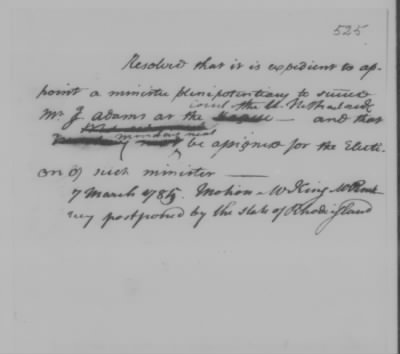 525
Resolved that it is expedient to ap-
point a minister plenipotentiary to succeed
court the U. Netherlands
Mr J. Adams at the Hague — and that
monday next
be assigned for the Electi-
on of such minister —
7 March 1785. Motion - Mr King Mr
postponed by the State of Rhode island